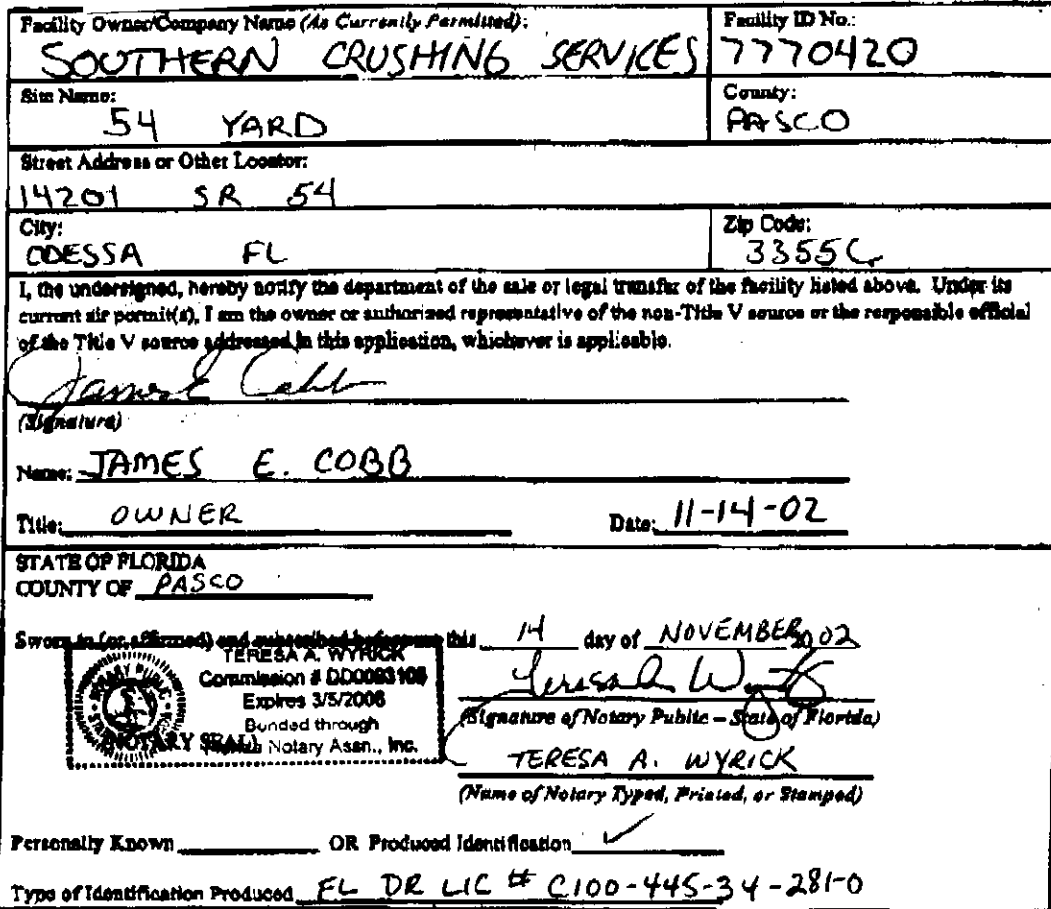 Facility Owner/Company Name (As Currently Permitted):
SOUTHERN CRUSHING SERVICES
Facility ID No.:
7770420
Site Name:
54 YARD
County:
PASCO
Street Address or Other Locator:
14201 SR 54
City:
ODESSA FL
Zip Code:
33556
I, the undersigned, hereby notify the department of the sale or legal transfer of the facility listed above. Under its
current air permit(s), I am the owner or authorized representative of the non-Title V source or the responsible official
of the Title V source addressed in this application, whichever is applicable.
James E Cobb
(Signature)
Name: JAMES E. COBB
Title: OWNER Date: 11-14-02
STATE OF FLORIDA
COUNTY OF PASCO
Sworn to (or affirmed) and subscribed before me this 14 day of NOVEMBER, 2002
TERESA A. WYRICK
Commission # DD0093108
Expires 3/5/2006
Bonded through
Notary Assn., Inc.
NOTARY PUBLIC
(NOTARY SEAL)
Teresa A W
(Signature of Notary Public – State of Florida)
TERESA A. WYRICK
(Name of Notary Typed, Printed, or Stamped)
Personally Known OR Produced Identification ✓
Type of Identification Produced FL DR LIC # C100-445-34-281-0